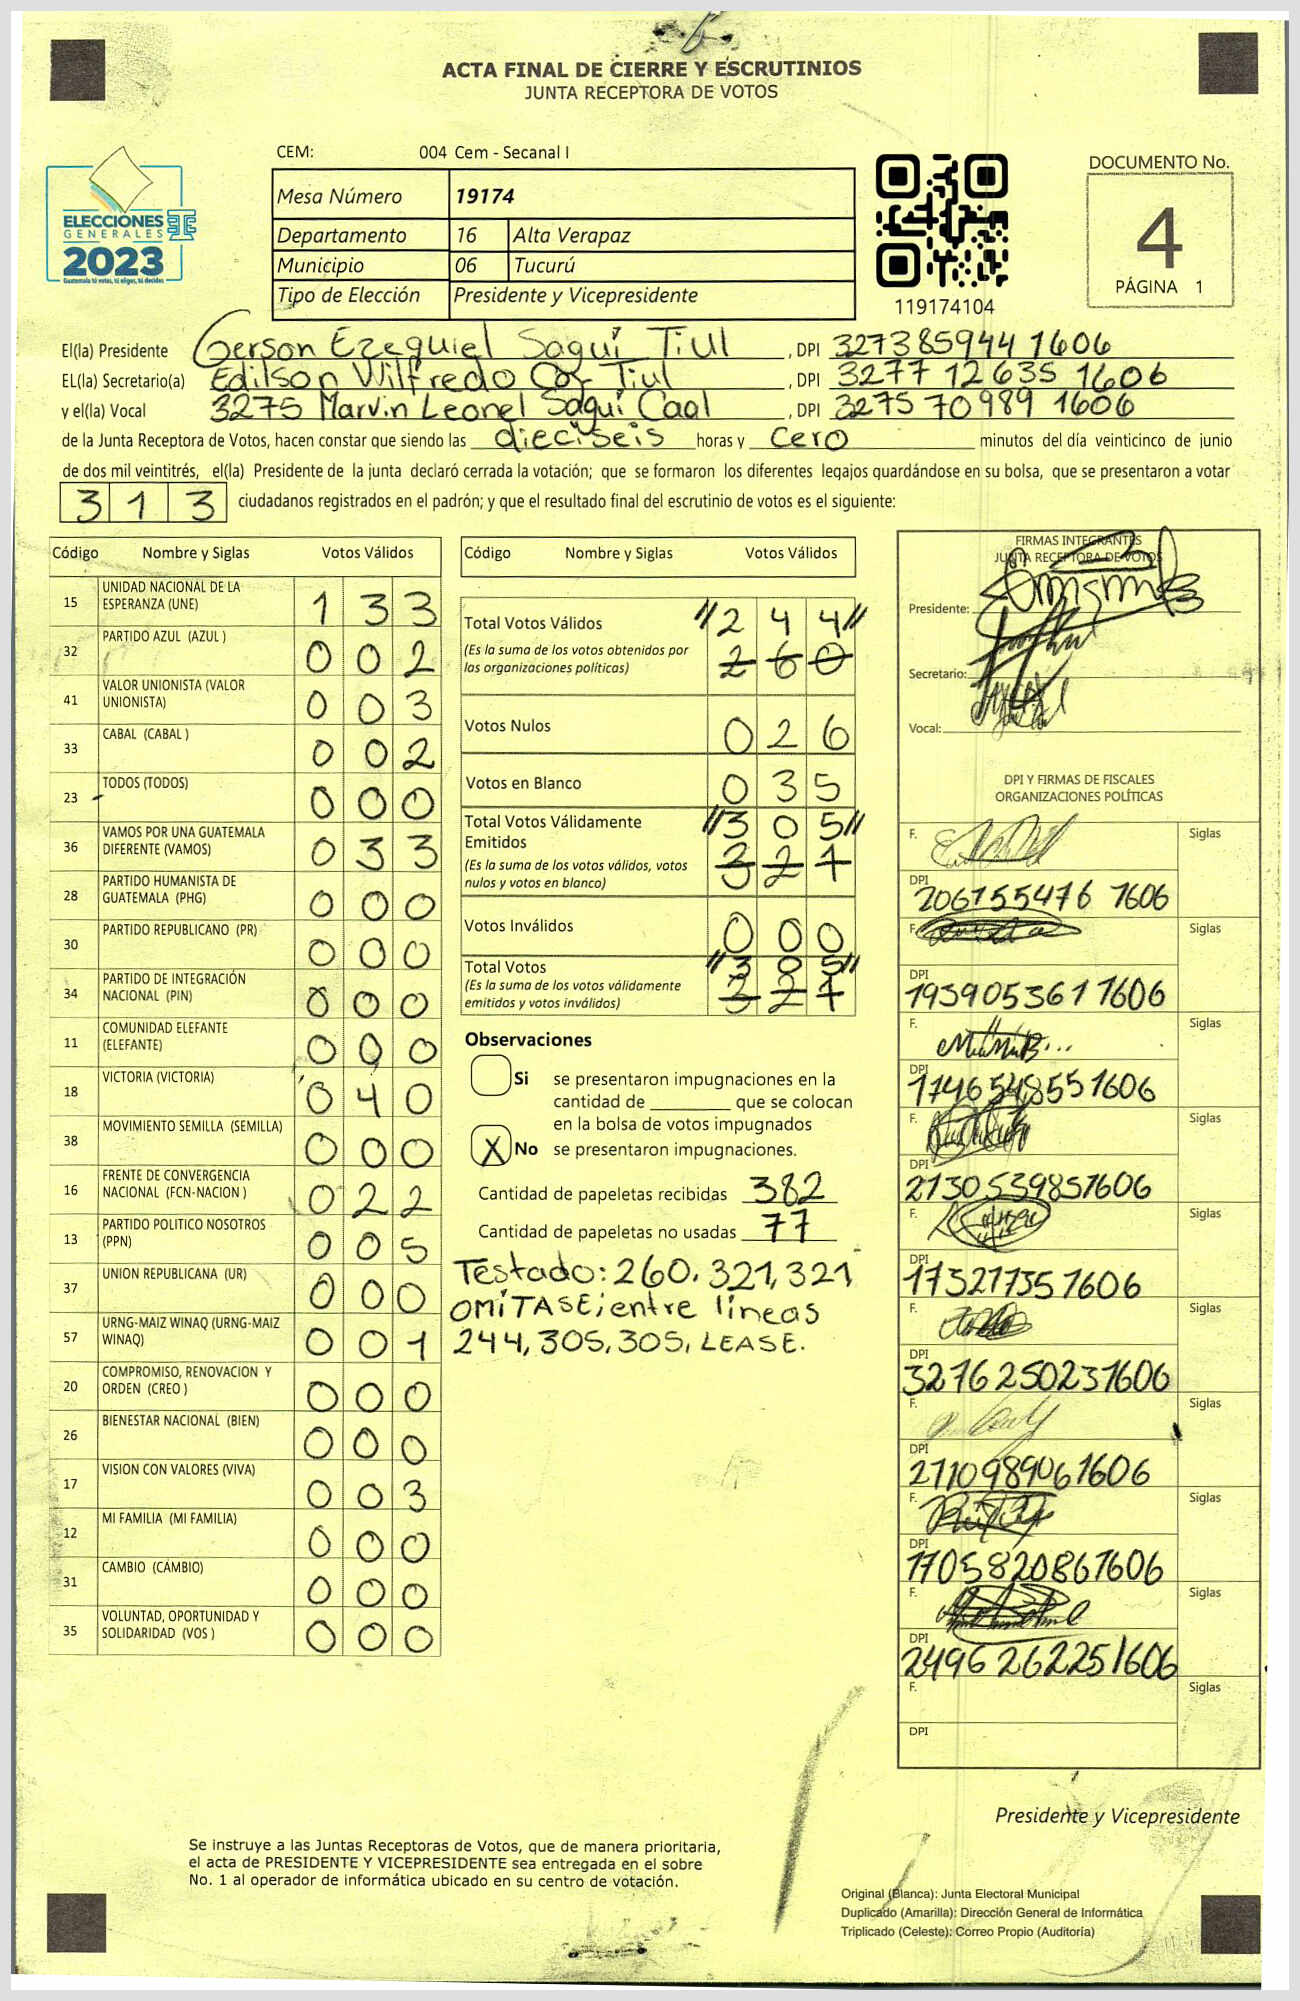 ACTA FINAL DE CIERRE Y ESCRUTINIOS
JUNTA RECEPTORA DE VOTOS
CEM: 004 Cem - Secanal I
Mesa Número 19174
Departamento 16 Alta Verapaz
Municipio 06 Tucurú
Tipo de Elección Presidente y Vicepresidente
ELECCIONES
GENERALES
2023
Guatemala tú votas, tú eliges, tú decides
119174104
DOCUMENTO No.
4
PÁGINA 1
El(la) Presidente Gerson Ezequiel Saquí Tiul, DPI 327385944 1606
EL(la) Secretario(a) Edilson Wilfredo Coz Tiul, DPI 3277 12 635 1606
y el(la) Vocal 3275 Marvin Leonel Saqui Caal, DPI 3275 70989 1606
de la Junta Receptora de Votos, hacen constar que siendo las dieciseis horas y cero minutos del día veinticinco de junio
de dos mil veintitrés, el(la) Presidente de la junta declaró cerrada la votación; que se formaron los diferentes legajos guardándose en su bolsa, que se presentaron a votar
3 1 3 ciudadanos registrados en el padrón; y que el resultado final del escrutinio de votos es el siguiente:
Código Nombre y Siglas Votos Válidos
15 UNIDAD NACIONAL DE LA ESPERANZA (UNE) 1 3 3
32 PARTIDO AZUL (AZUL ) 0 0 2
41 VALOR UNIONISTA (VALOR UNIONISTA) 0 0 3
33 CABAL (CABAL ) 0 0 2
23 TODOS (TODOS) 0 0 0
36 VAMOS POR UNA GUATEMALA DIFERENTE (VAMOS) 0 3 3
28 PARTIDO HUMANISTA DE GUATEMALA (PHG) 0 0 0
30 PARTIDO REPUBLICANO (PR) 0 0 0
34 PARTIDO DE INTEGRACIÓN NACIONAL (PIN) 0 0 0
11 COMUNIDAD ELEFANTE (ELEFANTE) 0 0 0
18 VICTORIA (VICTORIA) 0 4 0
38 MOVIMIENTO SEMILLA (SEMILLA) 0 0 0
16 FRENTE DE CONVERGENCIA NACIONAL (FCN-NACION ) 0 2 2
13 PARTIDO POLITICO NOSOTROS (PPN) 0 0 5
37 UNION REPUBLICANA (UR) 0 0 0
57 URNG-MAIZ WINAQ (URNG-MAIZ WINAQ) 0 0 1
20 COMPROMISO, RENOVACION Y ORDEN (CREO ) 0 0 0
26 BIENESTAR NACIONAL (BIEN) 0 0 0
17 VISION CON VALORES (VIVA) 0 0 3
12 MI FAMILIA (MI FAMILIA) 0 0 0
31 CAMBIO (CAMBIO) 0 0 0
35 VOLUNTAD, OPORTUNIDAD Y SOLIDARIDAD (VOS ) 0 0 0
Código Nombre y Siglas Votos Válidos
Total Votos Válidos //2 4 4//
(Es la suma de los votos obtenidos por las organizaciones políticas) 2 6 0
Votos Nulos 0 2 6
Votos en Blanco 0 3 5
Total Votos Válidamente Emitidos //3 0 5//
(Es la suma de los votos válidos, votos nulos y votos en blanco) 3 2 1
Votos Inválidos 0 0 0
Total Votos //3 0 5//
(Es la suma de los votos válidamente emitidos y votos inválidos) 3 2 1
Observaciones
Si se presentaron impugnaciones en la
cantidad de ________ que se colocan
en la bolsa de votos impugnados
X No se presentaron impugnaciones.
Cantidad de papeletas recibidas 382
Cantidad de papeletas no usadas 77
Testado: 260, 321, 321
OMITASE; entre líneas
244, 305, 305, LEASE.
FIRMAS INTEGRANTES
JUNTA RECEPTORA DE VOTOS
Presidente:
Secretario:
Vocal:
DPI Y FIRMAS DE FISCALES
ORGANIZACIONES POLÍTICAS
F. Siglas
DPI 206155476 1606
F. Siglas
DPI 193905361 1606
F. Siglas
DPI 174654855 1606
F. Siglas
DPI 213053985 1606
F. Siglas
DPI 173277357606
F. Siglas
DPI 3276 25023 1606
F. Siglas
DPI 271098906 1606
F. Siglas
DPI 170582086 1606
F. Siglas
DPI 2496 26225 1606
F. Siglas
DPI
Presidente y Vicepresidente
Se instruye a las Juntas Receptoras de Votos, que de manera prioritaria,
el acta de PRESIDENTE Y VICEPRESIDENTE sea entregada en el sobre
No. 1 al operador de informática ubicado en su centro de votación.
Original (Blanca): Junta Electoral Municipal
Duplicado (Amarilla): Dirección General de Informática
Triplicado (Celeste): Correo Propio (Auditoría)